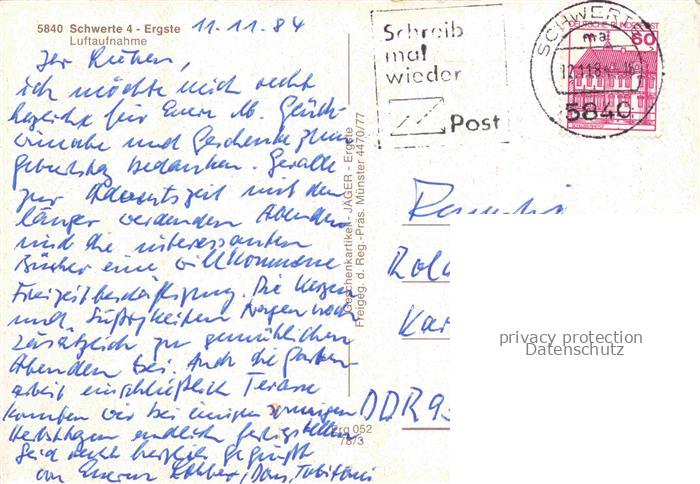 5840 Schwerte 4 - Ergste
Luftaufnahme
11.11.84
Ihr Lieben,
ich möchte mich recht
herzlich für Euern lb. Glück-
wünsche und Geschenke zum
Geburtstag bedanken. Gerade
zur Adventszeit mit den
länger werdenden Abenden
sind die interessanten
Bücher eine willkommene
Freizeitbeschäftigung. Die Kerzen
und Süßigkeiten tragen noch
zusätzlich zu gemütlichen
Abenden bei. Auch die Garten-
arbeit einschließlich Terasse
konnten wir bei einigen sonnigen
Herbsttagen endlich fertigstellen.
Seid recht herzlich gegrüßt
von Euerm
Geschenkartikel - JÄGER - Ergste
Freigeg. d. Reg.-Präs. Münster 4470/77
Erg 052
78/3
Schreib
mal
wieder
Post
SCHWERTE
ma
12.11.84
5840
DEUTSCHE BUNDESPOST
60
DDR 93
privacy protection
Datenschutz